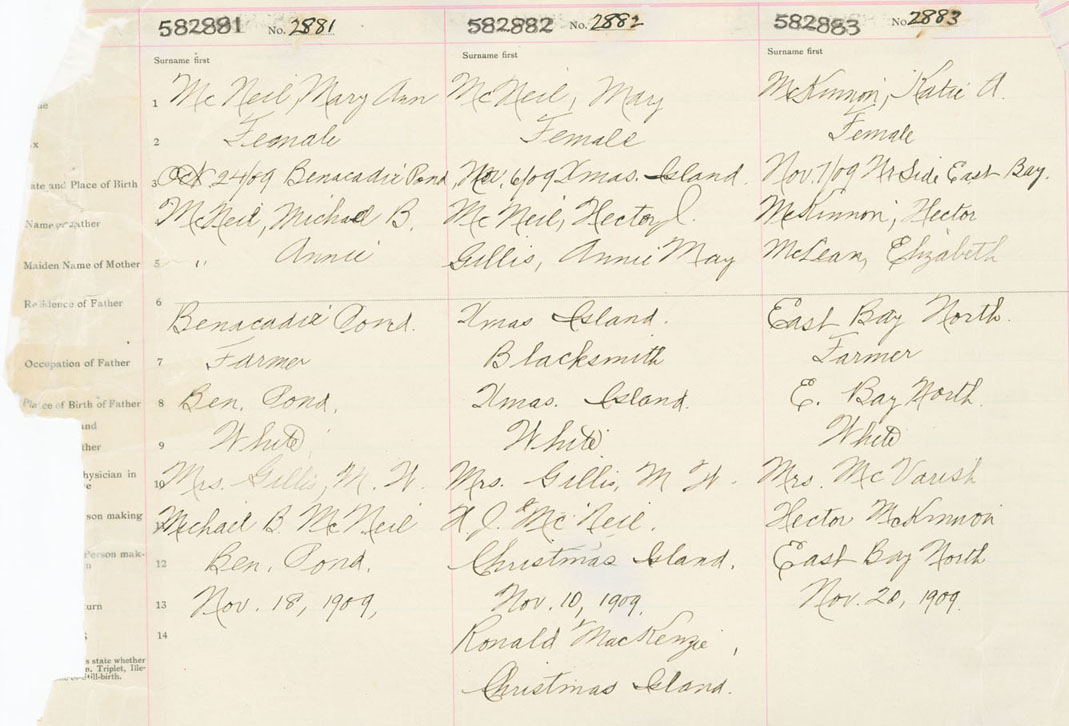 582881 No. 2881
582882 No. 2882
582883 No. 2883
Surname first
Surname first
Surname first
1 McNeil, Mary Ann
McNeil, May
McKinnon, Katie A.
2 Female
Female
Female
Date and Place of Birth
3 Oct 24/09 Benacadie Pond
Nov. 6/09 Xmas. Island.
Nov. 7/09 Nr Side East Bay.
Name of Father
McNeil, Michael B.
McNeil, Hector J.
McKinnon, Hector
Maiden Name of Mother
5 " Annie
Gillis, Annie May
McLean, Elizabeth
Residence of Father
6 Benacadie Pond.
Xmas Island.
East Bay North.
Occupation of Father
7 Farmer
Blacksmith
Farmer
Place of Birth of Father
8 Ben. Pond.
Xmas. Island.
E. Bay North.
and
ther
9 White
White
White
hysician in
10 Mrs. Gillis, M. W.
Mrs. Gillis, M W.
Mrs. McVarish
rson making
Michael B. McNeil
H. J. McNeil.
Hector McKinnon
Person mak-
12 Ben. Pond.
Christmas Island.
East Bay North
turn
13 Nov. 18, 1909,
Nov. 10, 1909.
Nov. 20, 1909.
14 Ronald MacKenzie,
Christmas Island.
s state whether
n, Triplet, Ille-
or Still-birth.